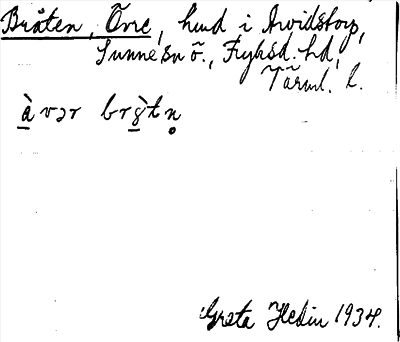 Bråten, Övre, hmd i Arvidstorp,
Sunne sn ö., Fryksd. hd,
Värml. l.
à vər brö̀tn̥
Greta Hedin 1934.